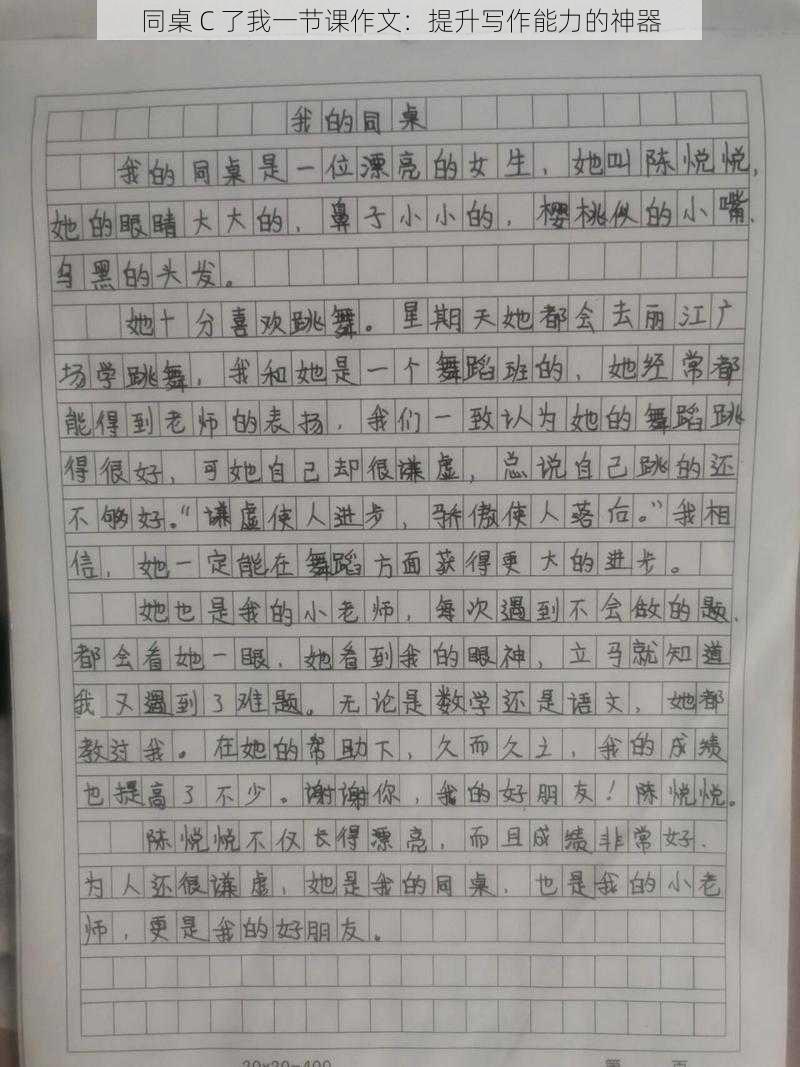 同桌 C 了我一节课作文：提升写作能力的神器
我的同桌
我的同桌是一位漂亮的女生，她叫陈悦悦，
她的眼睛大大的，鼻子小小的，樱桃似的小嘴，
乌黑的头发。
她十分喜欢跳舞。星期天她都会去丽江广
场学跳舞，我和她是一个舞蹈班的，她经常都
能得到老师的表扬，我们一致认为她的舞蹈跳
得很好，可她自己却很谦虚，总说自己跳的还
不够好。“谦虚使人进步，骄傲使人落后。”我相
信，她一定能在舞蹈方面获得更大的进步。
她也是我的小老师，每次遇到不会做的题，
都会看她一眼，她看到我的眼神，立马就知道
我又遇到了难题。无论是数学还是语文，她都
教过我。在她的帮助下，久而久之，我的成绩
也提高了不少。谢谢你，我的好朋友！陈悦悦。
陈悦悦不仅长得漂亮，而且成绩非常好，
为人还很谦虚，她是我的同桌，也是我的小老
师，更是我的好朋友。
20×20=400
第 页